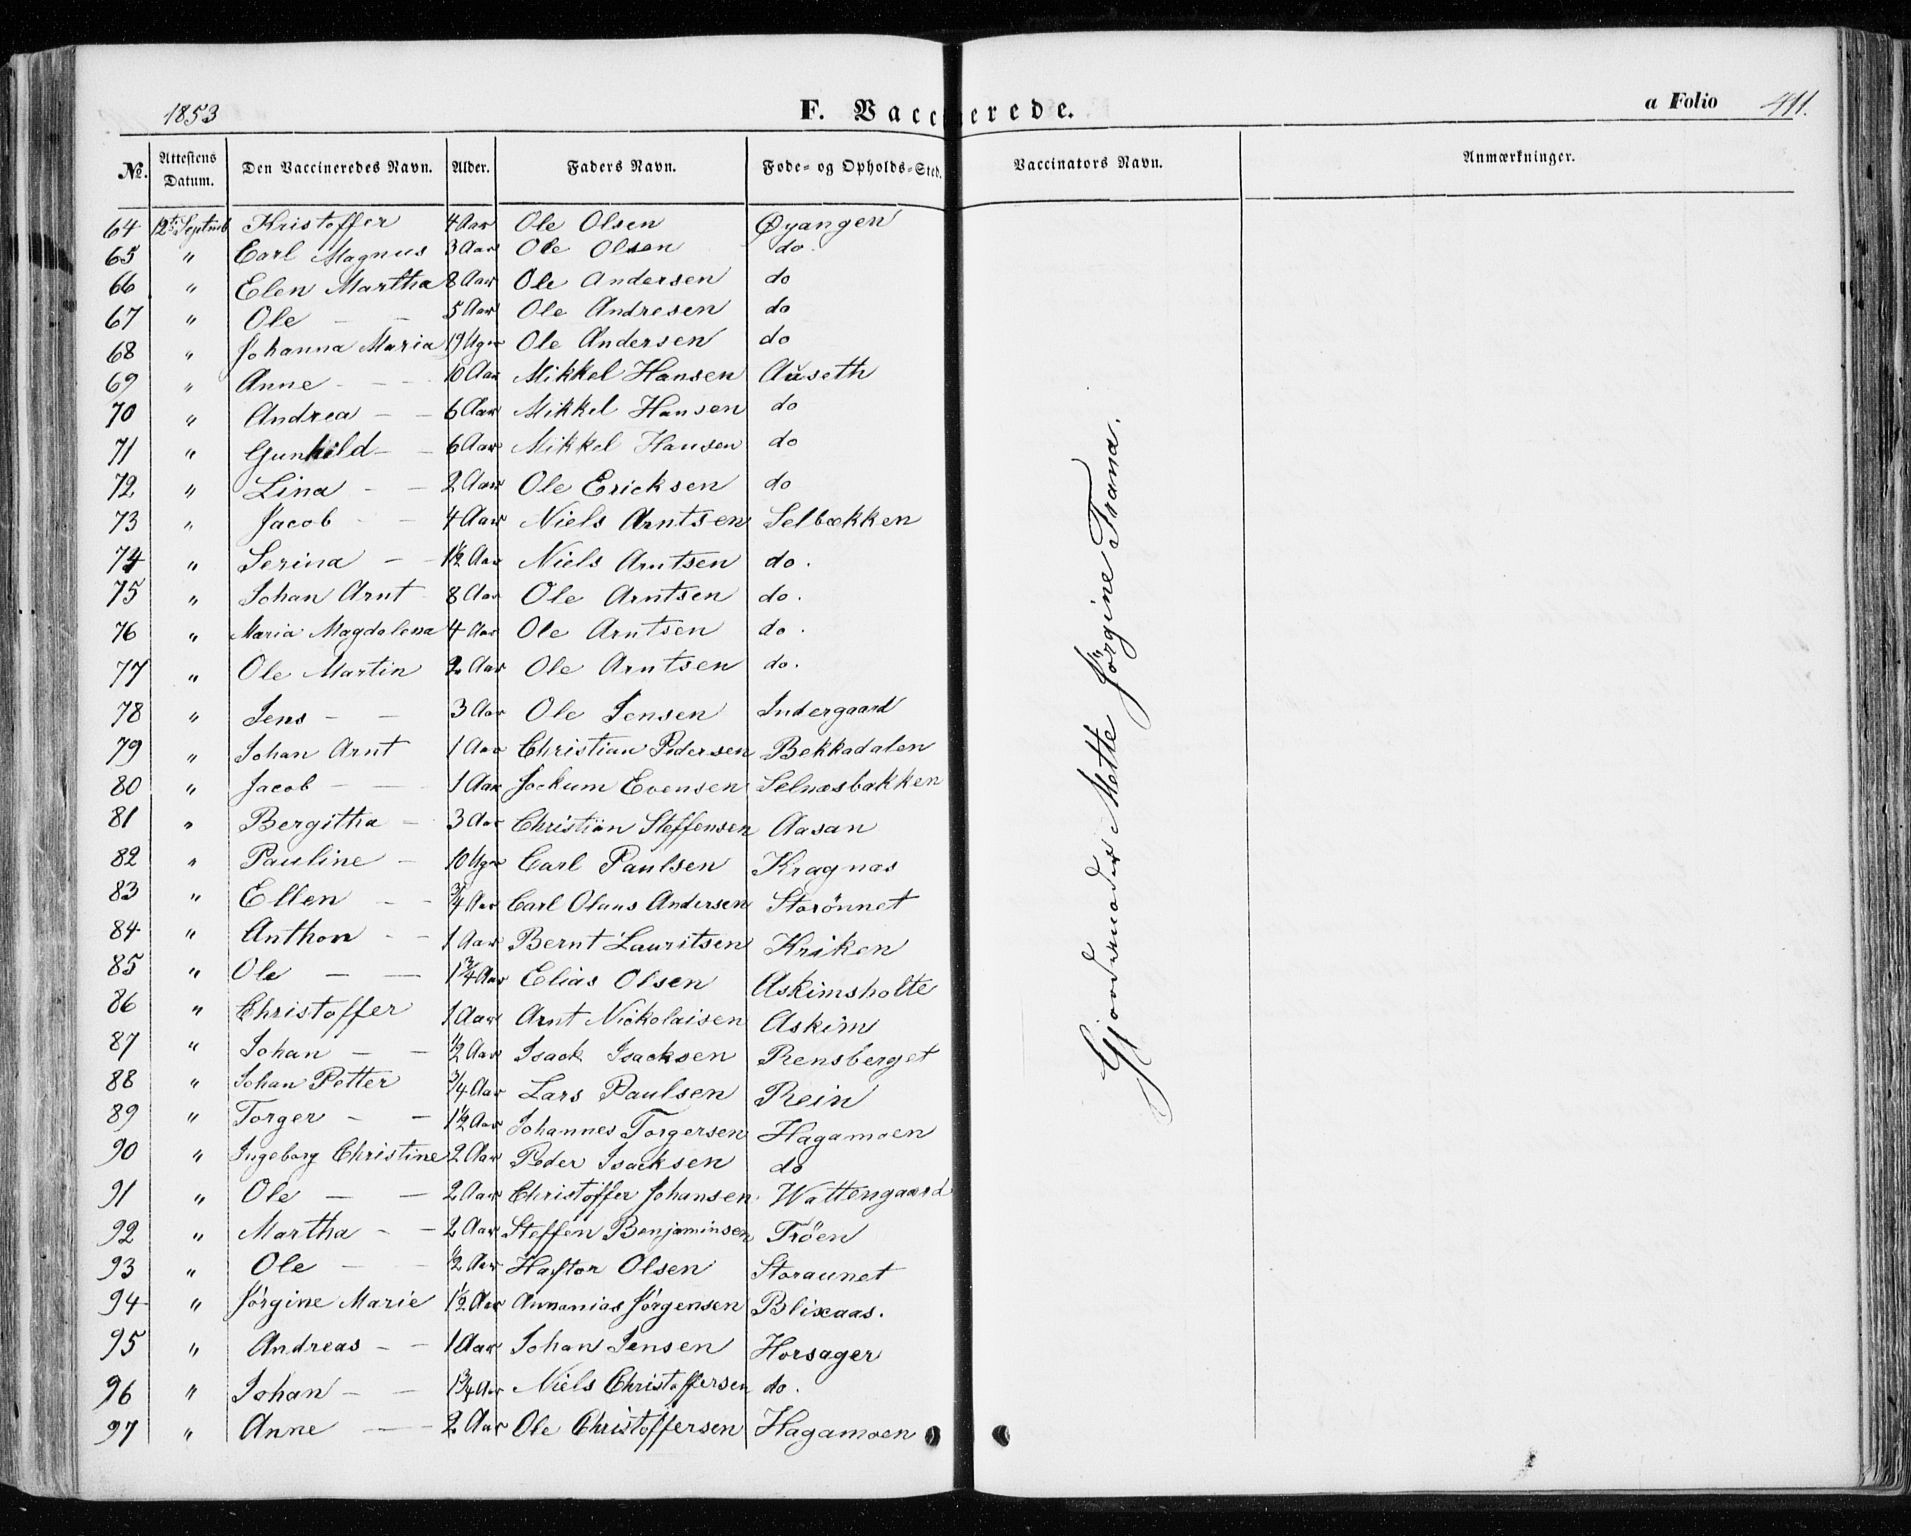 1853 F. Vaccinerede. a Folio 411.
No. Attestens Datum. Den Vaccineredes Navn. Alder. Faders Navn. Føde- og Opholds-Sted. Vaccinators Navn. Anmærkninger.
64 12te Septemb Kristoffer 4 Aar Ole Olsen Øyangen
65 " Carl Magnus 3 Aar Ole Olsen do.
66 " Elen Martha 8 Aar Ole Andersen do
67 " Ole — — 5 Aar Ole Andresen do
68 " Johanna Maria 19 Uger Ole Andersen do
69 " Anne - - - 10 Aar Mikkel Hansen Auseth
70 " Andrea — — 6 Aar Mikkel Hansen do
71 " Gunhild — - 6 Aar Mikkel Hansen do
72 " Lina - — 2 Aar Ole Ericksen do
73 " Jacob - - 4 Aar Niels Arntsen Selbækken
74 " Serina — - 1½ Aar Niels Arntsen do.
75 " Johan Arnt 8 Aar Ole Arntsen do.
76 " Maria Magdalena 4 Aar Ole Arntsen do.
77 " Ole Martin 2 Aar Ole Arntsen do.
78 " Jens — — 3 Aar Ole Jensen Indergaard
79 " Johan Arnt 1 Aar Christian Pedersen Bekkadalen
80 " Jacob — — 1 Aar Jockum Evensen Selnæsbakken
81 " Bergitha — 3 Aar Christian Steffensen Aasan
82 " Pauline — 10 Uger Carl Paulsen Kragnæs
83 " Ellen — - 3/4 Aar Carl Olaus Andersen Storönnet
84 " Anthon - - 1 Aar Bernt Lauritsen Kriken
85 " Ole — — 1 3/4 Aar Elias Olsen Askimsholte
86 " Christoffer 1 Aar Arnt Nickolaisen Askim
87 " Johan — — 1/2 Aar Isack Isacksen Rensberget
88 " Johan Petter 3/4 Aar Lars Paulsen Rein
89 " Torger — — 1½ Aar Johannes Torgersen Hagamoen
90 " Ingeborg Christine 2 Aar Peder Isacksen do
91 " Ole — — 2 Aar Christoffer Johansen Wattengaard
92 " Martha - — 2 Aar Steffen Benjaminsen Tröen
93 " Ole — - 1/2 Aar Haftor Olsen Storaunet
94 " Jörgine Marie 1½ Aar Annanias Jörgensen Blixaas.
95 " Andreas — — 1 Aar Johan Jensen Horsager
96 " Johan — — 1 3/4 Aar Niels Christoffersen do.
97 " Anne — — 2 Aar Ole Christoffersen Hagamoen
Gjordemoder Mette Jörgine Trana.